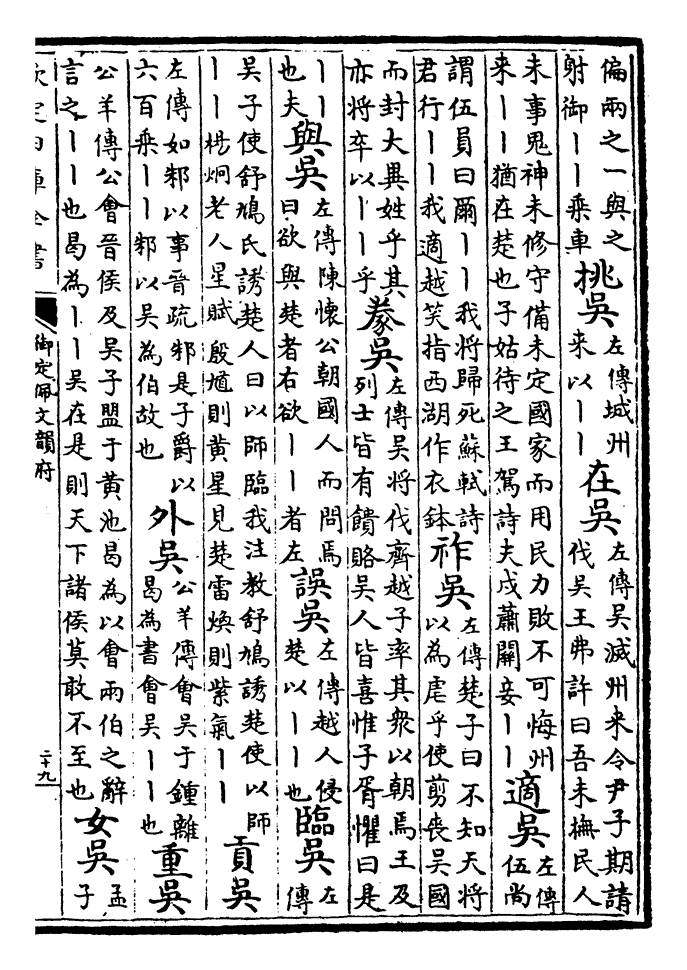 偏兩之一與之
射御丨丨乘車
挑吳
左傳城州
來以丨丨
在吳
左傳吳滅州來令尹子期請
伐吳王弗許曰吾未撫民人
未事鬼神未修守備未定國家而用民力敗不可悔州
來丨丨猶在楚也子姑待之王駕詩夫戍蕭關妾丨丨
適吳
左傳
伍尚
謂伍員曰爾丨丨我將歸死蘇軾詩
君行丨丨我適越笑指西湖作衣鉢
祚吳
左傳楚子曰不知天將
以為虐乎使剪喪吳國
而封大異姓乎其
亦將卒以丨丨乎
豢吳
左傳吳將伐齊越子率其衆以朝焉王及
列士皆有饋賂吳人皆喜惟子胥懼曰是
丨丨
也夫
與吳
左傳陳懷公朝國人而問焉
曰欲與楚者右欲丨丨者左
誤吳
左傳越人侵
楚以丨丨也
臨吳
左
傳
吳子使舒鳩氏誘楚人曰以師臨我注教舒鳩誘楚使以師
丨丨楊炯老人星賦殷馗則黄星見楚雷煥則紫氣丨丨
貢吳
左傳如邾以事晉疏邾是子爵以
六百乘丨丨邾以吳為伯故也
外吳
公羊傳會吳于鍾離
曷為書會吳丨丨也
重吳
公羊傳公會晉侯及吳子盟于黄池曷為以會兩伯之辭
言之丨丨也曷為丨丨吳在是則天下諸侯莫敢不至也
女吳
孟
子
欽定四庫全書
御定佩文韻府
二十九